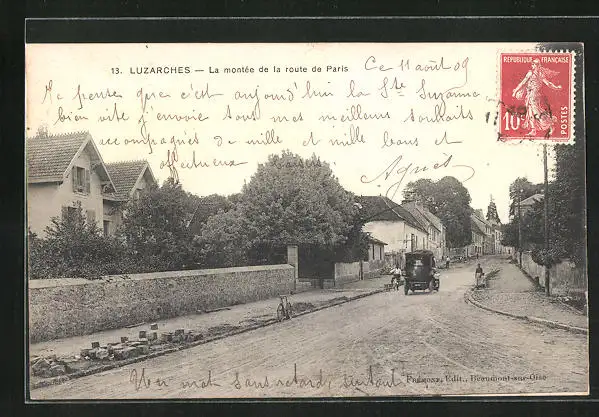 13. LUZARCHES — La montée de la route de Paris
Ce 11 août 09
REPUBLIQUE FRANÇAISE
10c POSTES
penser que c'est aujourd'hui la Ste Suzanne
bien vite j'envoie tous mes meilleurs souhaits
accompagnés de mille et mille bons et
affectueux
Agnès
Un mot sans retard, surtout
FRÉMONT, Edit., Beaumont-sur-Oise